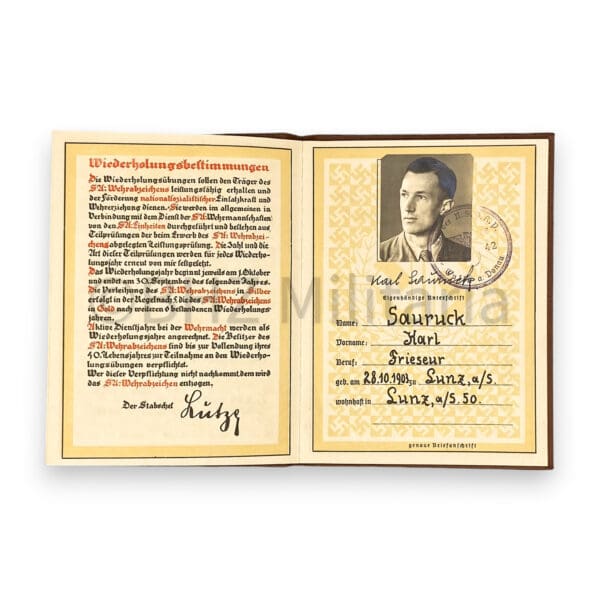 Wiederholungsbestimmungen
Die Wiederholungsübungen sollen den Träger des
SA-Wehrabzeichens leistungsfähig erhalten und
der Förderung nationalsozialistischer Einsatzkraft und
Wehrerziehung dienen. Sie werden im allgemeinen in
Verbindung mit dem Dienst der SA-Wehrmannschaften
von den SA-Einheiten durchgeführt und bestehen aus
Teilprüfungen der beim Erwerb des SA-Wehrabzei-
chens abgelegten Leistungsprüfung. Die Zahl und die
Art dieser Teilprüfungen werden für jedes Wiederho-
lungsjahr erneut von mir festgesetzt.
Das Wiederholungsjahr beginnt jeweils am 1. Oktober
und endet am 30. September des folgenden Jahres.
Die Verleihung des SA-Wehrabzeichens in Silber
erfolgt in der Regel nach 5, die des SA-Wehrabzeichens
in Gold nach weiteren 6 bestandenen Wiederholungs-
jahren.
Aktive Dienstjahre bei der Wehrmacht werden als
Wiederholungsjahre angerechnet. Die Besitzer des
SA-Wehrabzeichens sind bis zur Vollendung ihres
40. Lebensjahres zur Teilnahme an den Wiederho-
lungsübungen verpflichtet.
Wer dieser Verpflichtung nicht nachkommt, dem wird
das SA-Wehrabzeichen entzogen.
Der Stabschef Lutze
Karl
Eigenhändige Unterschrift
Name: Sauruck
Vorname: Karl
Beruf: Frieseur
geb. am 28.10.1903 zu Lunz, a/S.
wohnhaft in Lunz, a/S. 50.
genaue Briefanschrift
a. Donau
Militaria